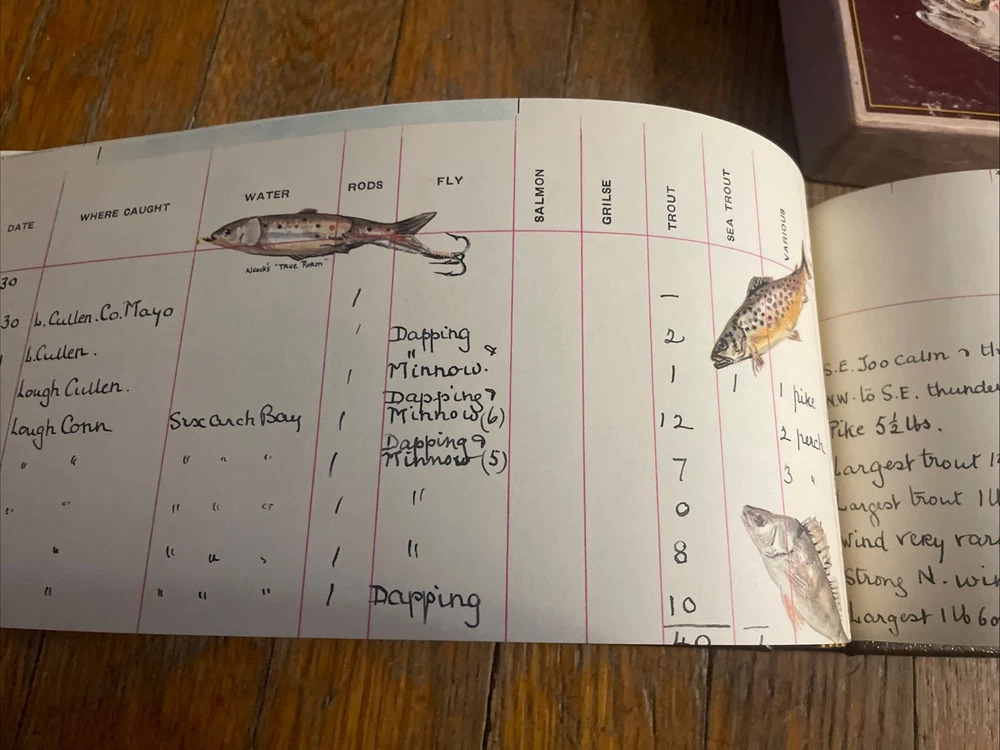 DATE WHERE CAUGHT WATER RODS FLY SALMON GRILSE TROUT SEA TROUT VARIOUS
"TRUE FORM"
30 1 –
30 L. Cullen. Co. Mayo 1 Dapping 2
L. Cullen. 1 " & Minnow. 1 1 1 pike S.E. Too calm & th
Lough Cullen. 1 Dapping & Minnow (6) 12 2 perch N.W. to S.E. thunder
Lough Conn Six Arch Bay 1 Dapping & Minnow (5) 7 3 " Pike 5½ lbs.
" " " " " 1 " 0 Largest trout 1
" " " " " 1 " 8 Largest trout 1 lb
" " " " 1 Dapping 10 Wind very var
40 1 Strong N. win
Largest 1 lb 6o